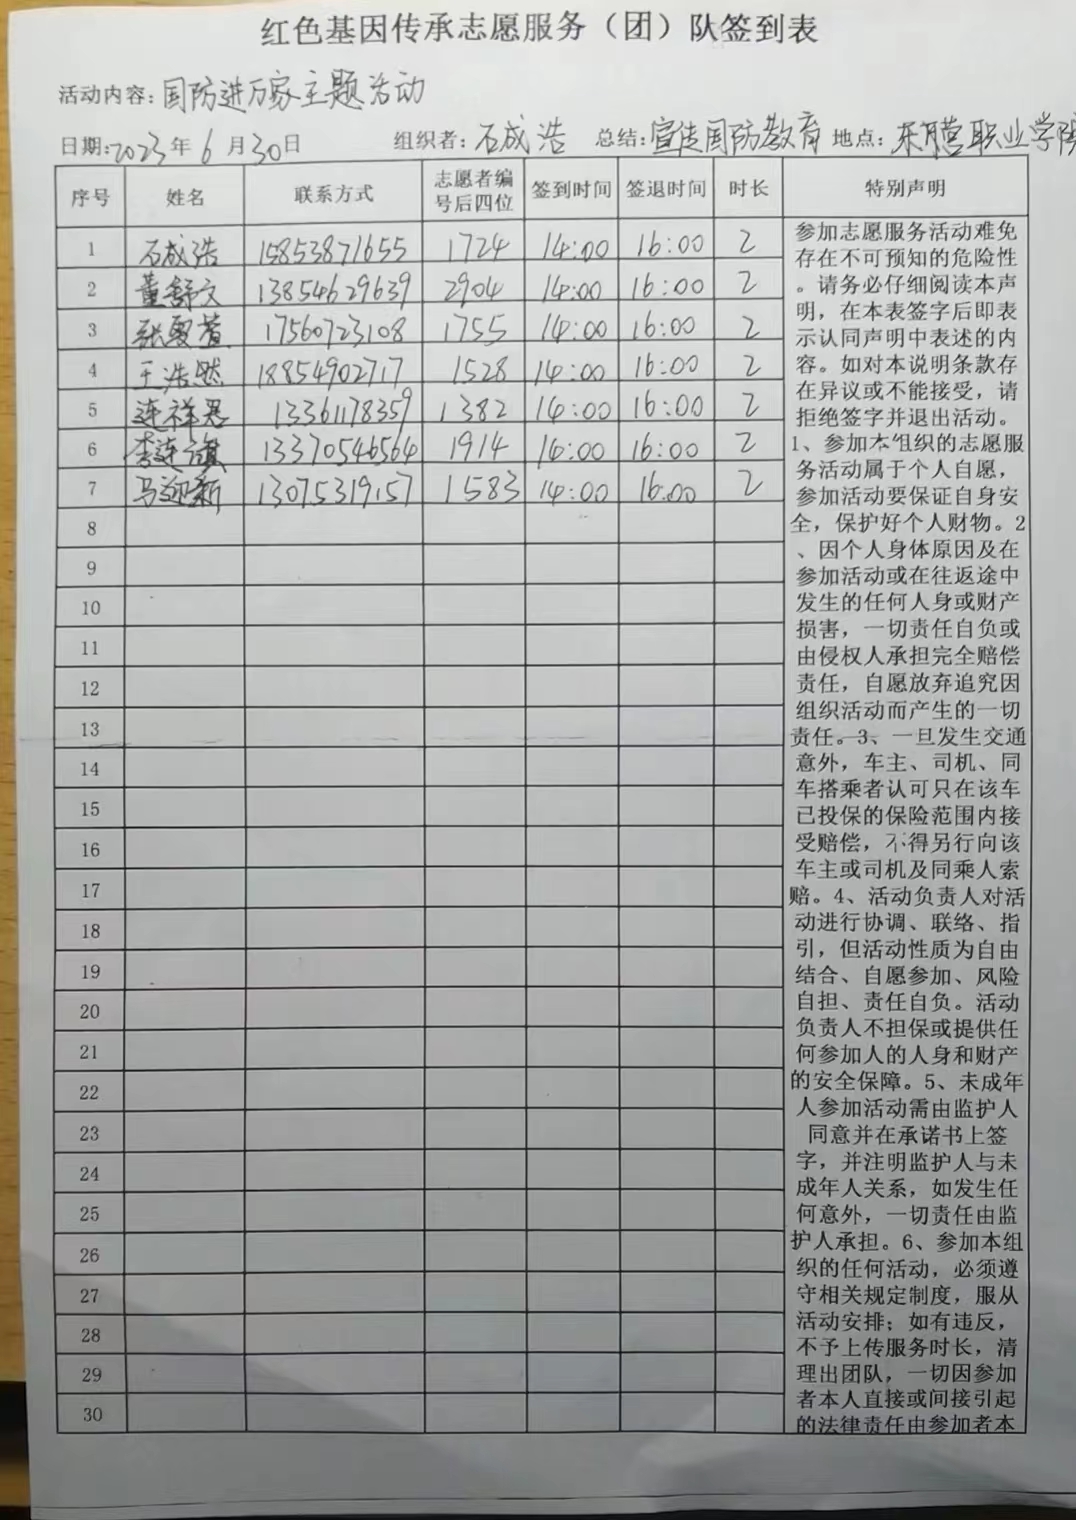 红色基因传承志愿服务（团）队签到表
活动内容：国防进万家主题活动
日期：2023年6月30日 组织者：石成浩 总结：宣传国防教育 地点：东营职业学院
序号 姓名 联系方式 志愿者编号后四位 签到时间 签退时间 时长 特别声明
1 石成浩 15853871655 1724 14:00 16:00 2
2 董舒文 13854629639 2904 14:00 16:00 2
3 张 17560723108 1755 14:00 16:00 2
4 王浩然 18854902717 1528 14:00 16:00 2
5 连祥恩 13361178359 1382 14:00 16:00 2
6 李连旗 13370546564 1914 14:00 16:00 2
7 马迎新 13075319157 1583 14:00 16:00 2
8
9
10
11
12
13
14
15
16
17
18
19
20
21
22
23
24
25
26
27
28
29
30
参加志愿服务活动难免
存在不可预知的危险性
。请务必仔细阅读本声
明，在本表签字后即表
示认同声明中表述的内
容。如对本说明条款存
在异议或不能接受，请
拒绝签字并退出活动。
1、参加本组织的志愿服
务活动属于个人自愿，
参加活动要保证自身安
全，保护好个人财物。2
、因个人身体原因及在
参加活动或在往返途中
发生的任何人身或财产
损害，一切责任自负或
由侵权人承担完全赔偿
责任，自愿放弃追究因
组织活动而产生的一切
责任。3、一旦发生交通
意外，车主、司机、同
车搭乘者认可只在该车
已投保的保险范围内接
受赔偿，不得另行向该
车主或司机及同乘人索
赔。4、活动负责人对活
动进行协调、联络、指
引，但活动性质为自由
结合、自愿参加、风险
自担、责任自负。活动
负责人不担保或提供任
何参加人的人身和财产
的安全保障。5、未成年
人参加活动需由监护人
同意并在承诺书上签
字，并注明监护人与未
成年人关系，如发生任
何意外，一切责任由监
护人承担。6、参加本组
织的任何活动，必须遵
守相关规定制度，服从
活动安排；如有违反，
不予上传服务时长，清
理出团队，一切因参加
者本人直接或间接引起
的法律责任由参加者本